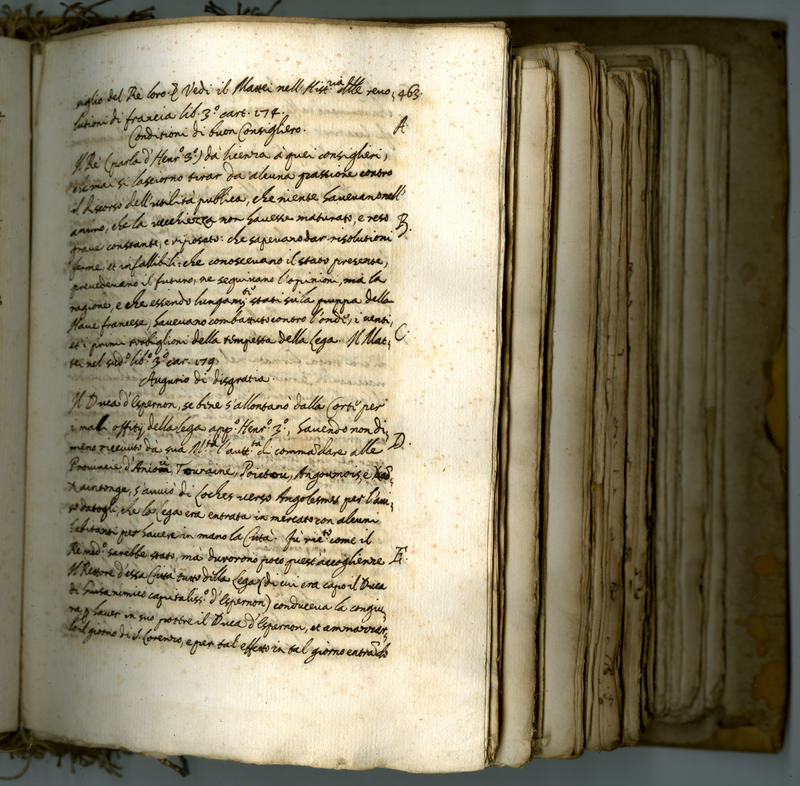 siglio del Rè loro. Vedi il Mattei nell'Hist.ria delle revo, 463.
lutioni di francia lib. 3.º cart. 174.
A.
Conditioni di buon Consigliero.
Il Rè (parla d'Henr.º 3.º) dà licenza à quei consiglieri,
che mai si lasciorno tirar da alcuna passione contro
il discorso dell'utilità publica, che niente havevano nell'
animo, che la vecchiezza non havesse maturato, e reso
B.
grave constante, e riposato: che sapevano dar risolutioni
ferme, et infallibili: che conoscevano il stato presente,
prevedevano il futuro, ne seguivano l'opinioni, mà la
ragione, e che essendo lungam.te stati sù la puppa della
Nave francese, havevano combattuto contro l'onde, i venti,
C.
et i primi torbiglioni della tempesta della Lega. Il Mat-
tei nel sud.º lib.º 3.º car. 179.
Augurio di disgratia.
Il Duca d'Espernon, se bine s'allontanò dalla Corte per
i mali offitij della Lega app.º Henr.º 3.º, havendo non di,
D.
meno ricevuto da sua M.tà l'autt.tà di commãdare alle
Provincie d'Aniou, Touraine, Poictou, Angoumois, e
Xaintonge, s'avviò di Loches verso Angolesmes per l'avi,
so datogli, che la Lega era entrata in mercato con alcuni
habitanti per havere in mano la Città. Fù ric.to come il
Rè med.º sarebbe stato, ma durorono poco quest'accoglienze
E.
Il Rettore d'essa Città tutto della Lega (di cui era capo il Duca
di Guisa nimico capitaliss.º d'Espernon) conduceva la congiu,
ra, p haver in suo potere il Duca d'Espernon, et ammazzar,
lo il giorno di S. Lorenzo, e per tal effetto in tal giorno entrãdo